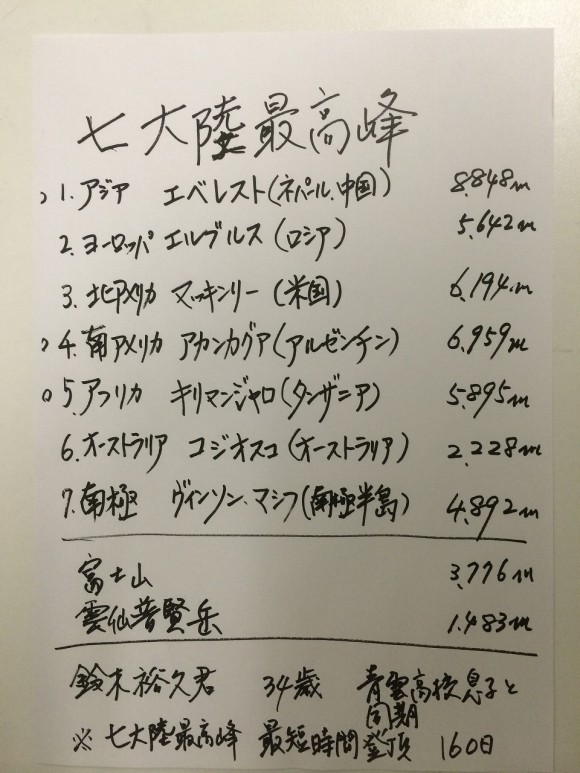 七大陸最高峰
1. アジア エベレスト(ネパール、中国) 8.848m
2. ヨーロッパ エルブルス(ロシア) 5.642m
3. 北アメリカ マッキンリー(米国) 6.194m
4. 南アメリカ アカンカグア(アルゼンチン) 6.959m
5. アフリカ キリマンジャロ(タンザニア) 5.895m
6. オーストラリア コジオスコ(オーストラリア) 2.228m
7. 南極 ヴィンソン、マシフ(南極半島) 4.892m
富士山 3.776m
雲仙普賢岳 1.483m
鈴木裕久君 34歳 青雲高校息子と同期
※七大陸最高峰 最短時間登頂 160日